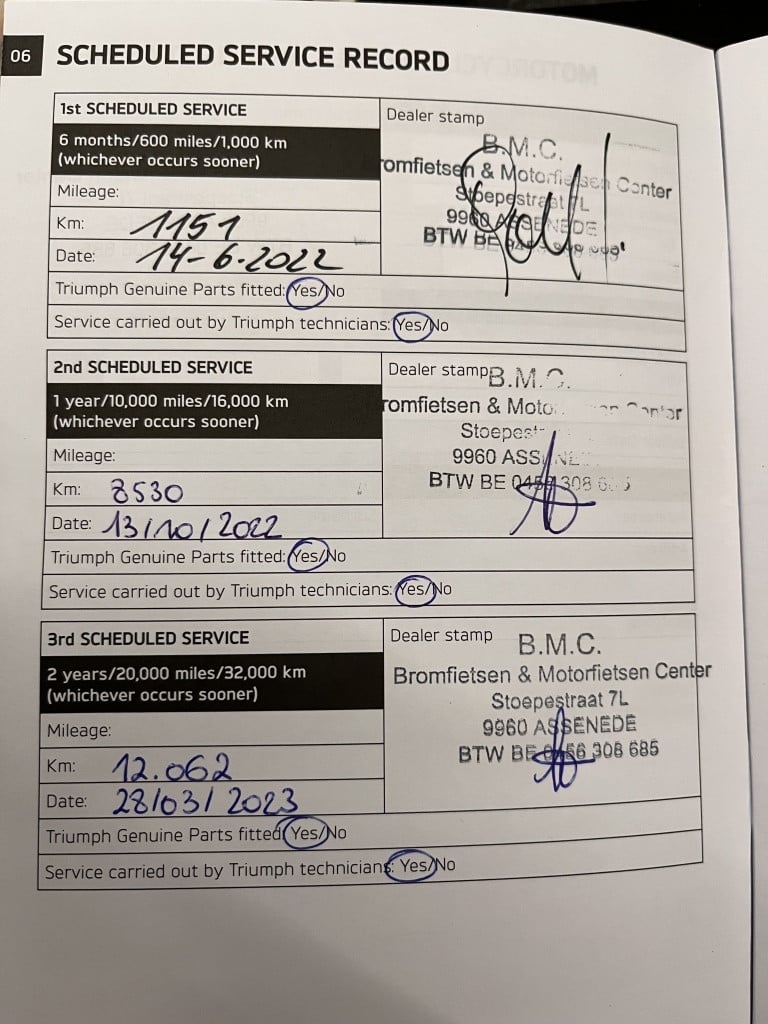 06 SCHEDULED SERVICE RECORD
1st SCHEDULED SERVICE
6 months/600 miles/1,000 km
(whichever occurs sooner)
Mileage:
Km: 1151
Date: 14-6-2022
Dealer stamp
B.M.C.
romfietsen & Motorfietsen Center
Stoepestraat 7L
9960 ASSENEDE
BTW BE
Triumph Genuine Parts fitted: Yes/No
Service carried out by Triumph technicians: Yes/No
2nd SCHEDULED SERVICE
1 year/10,000 miles/16,000 km
(whichever occurs sooner)
Mileage:
Km: 8530
Date: 13/10/2022
Dealer stamp
B.M.C.
romfietsen & Moto
Stoepest
9960 ASS
BTW BE 308
Triumph Genuine Parts fitted: Yes/No
Service carried out by Triumph technicians: Yes/No
3rd SCHEDULED SERVICE
2 years/20,000 miles/32,000 km
(whichever occurs sooner)
Mileage:
Km: 12.062
Date: 28/03/2023
Dealer stamp
B.M.C.
Bromfietsen & Motorfietsen Center
Stoepestraat 7L
9960 ASSENEDE
BTW BE 0456 308 685
Triumph Genuine Parts fitted: Yes/No
Service carried out by Triumph technicians: Yes/No